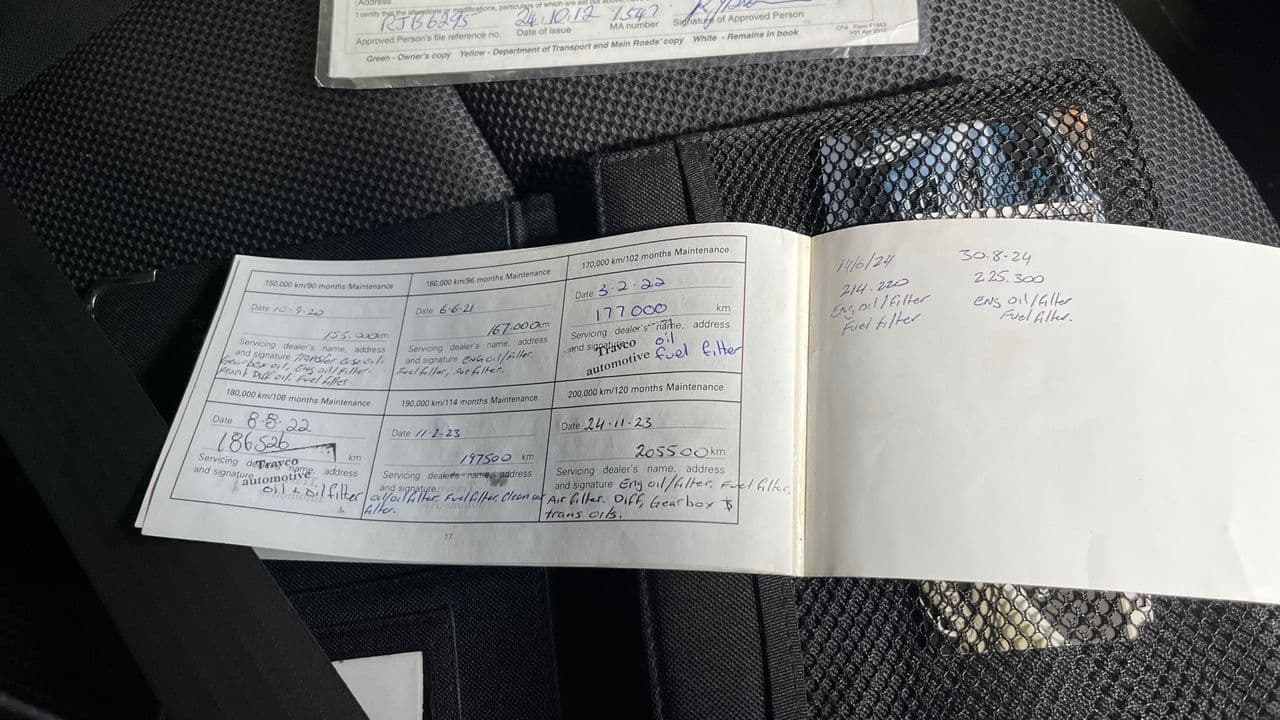 Address
I certify that the alterations or modifications, particulars of which are set out above,
RJB6295 24.10.12 1547
Approved Person's file reference no. Date of Issue MA number Signature of Approved Person
Green - Owner's copy Yellow - Department of Transport and Main Roads' copy White - Remains in book
150,000 km/90 months Maintenance
Date 10-9-20
155.000km
Servicing dealer's name, address
and signature Transfer case oil.
Gearbox oil, Eng oil/filter.
Front Diff oil. Fuel filter.
160,000 km/96 months Maintenance
Date 6.6.21
167.000km
Servicing dealer's name, address
and signature Eng oil/filter.
Fuel filter, Air filter.
170,000 km/102 months Maintenance
Date 3.2.22
177000 km
Servicing dealer's name, address
and signature oil
Travco
automotive fuel filter
180,000 km/108 months Maintenance
Date 8.8.22
186526 km
Servicing dealer's name, address
and signature
Travco
automotive
oil + oil filter
190,000 km/114 months Maintenance
Date 11-2-23
197500 km
Servicing dealer's name, address
and signature
oil/oil filter, Fuel filter, Clean air
filter.
200,000 km/120 months Maintenance
Date 24-11-23
205500km
Servicing dealer's name, address
and signature Eng oil/filter. Fuel filter,
Air filter. Diff, Gearbox &
trans oils.
17
14/6/24
214.220
Eng oil/filter
Fuel filter
30.8.24
225.300
Eng oil/filter
Fuel filter.